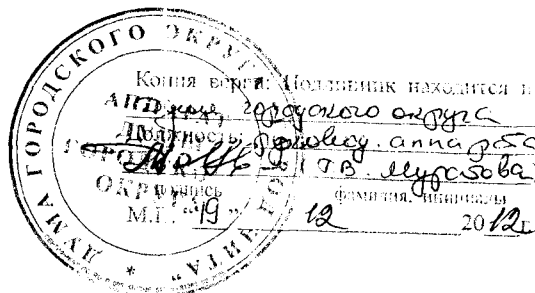 ДУМА ГОРОДСКОГО ОКРУГА
"ЧИТА"
Копия верна. Подлинник находится в
городского округа
Должность: руковод. аппарата
Г.В. Муратова
подпись
фамилия, инициалы
М.П. "19" 12 2012г.